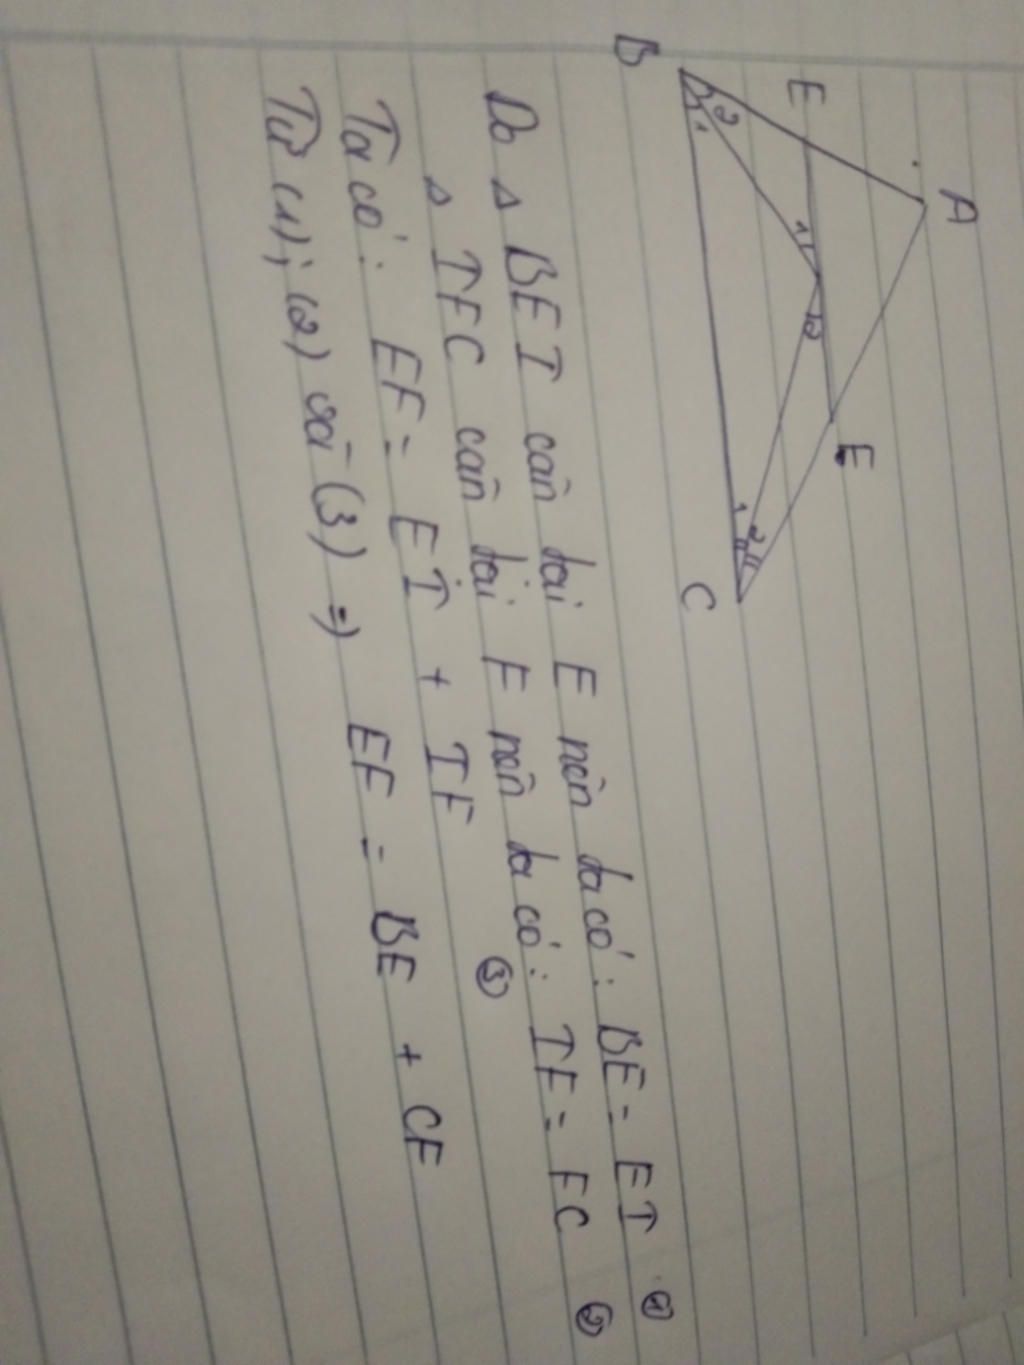 A
E
1 2
E
B 2 1
1 2 C
Do △ BEI cân tại E nên ta có: BE = EI (1)
△ IFC cân tại F nên ta có: IF = FC (2)
Ta có: EF = EI + IF (3)
Từ (1); (2) và (3) => EF = BE + CF